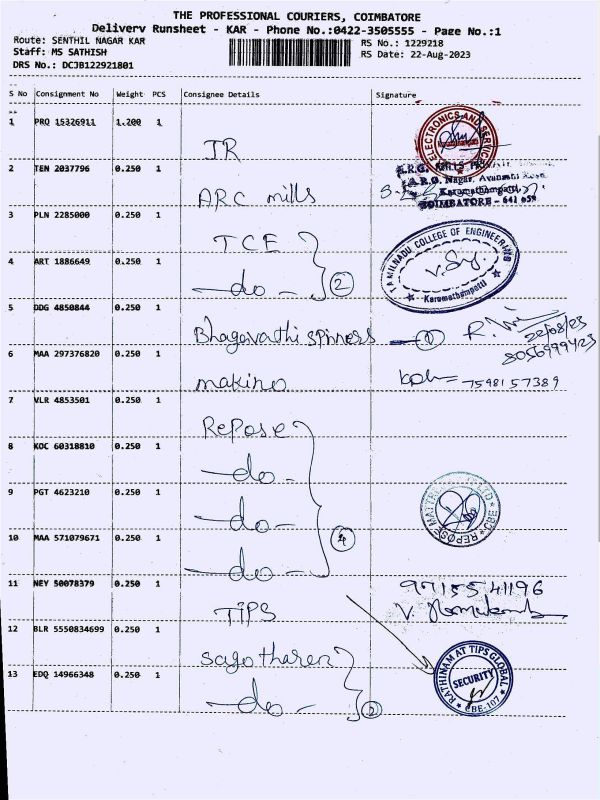 THE PROFESSIONAL COURIERS, COIMBATORE
Delivery Runsheet - KAR - Phone No.:0422-3505555 - Page No.:1
Route: SENTHIL NAGAR KAR
RS No.: 1229218
Staff: MS SATHISH
RS Date: 22-Aug-2023
DRS No.: DCJB122921801
S No Consignment No Weight PCS Consignee Details Signature
1 PRQ 15326911 1.200 1 IR
ELECTRONICS AND SERVICE
2 TEN 2037796 0.250 1 ARC mills
A.R.G. Nagar,
Karamathampatti
COIMBATORE - 641 659
3 PLN 2285000 0.250 1 TCE
TAMILNADU COLLEGE OF ENGINEERING
Karamathampatti
4 ART 1886649 0.250 1 -do- 2
5 DDG 4850844 0.250 1 Bhagavathi spinners 1
22/08/23
6 MAA 297376820 0.250 1 makino
7598157389
7 VLR 4853501 0.250 1 Repose
8 KOC 60318810 0.250 1 -do-
9 PGT 4623210 0.250 1 -do-
REPOSE MATTRESS
10 MAA 571079671 0.250 1 -do- 4
11 NEY 50078379 0.250 1 TIPS
9715541196
12 BLR 5550834699 0.250 1
RATHINAM AT TIPS GLOBAL
SECURITY
CBE-107
13 EDQ 14966348 0.250 1 -do-